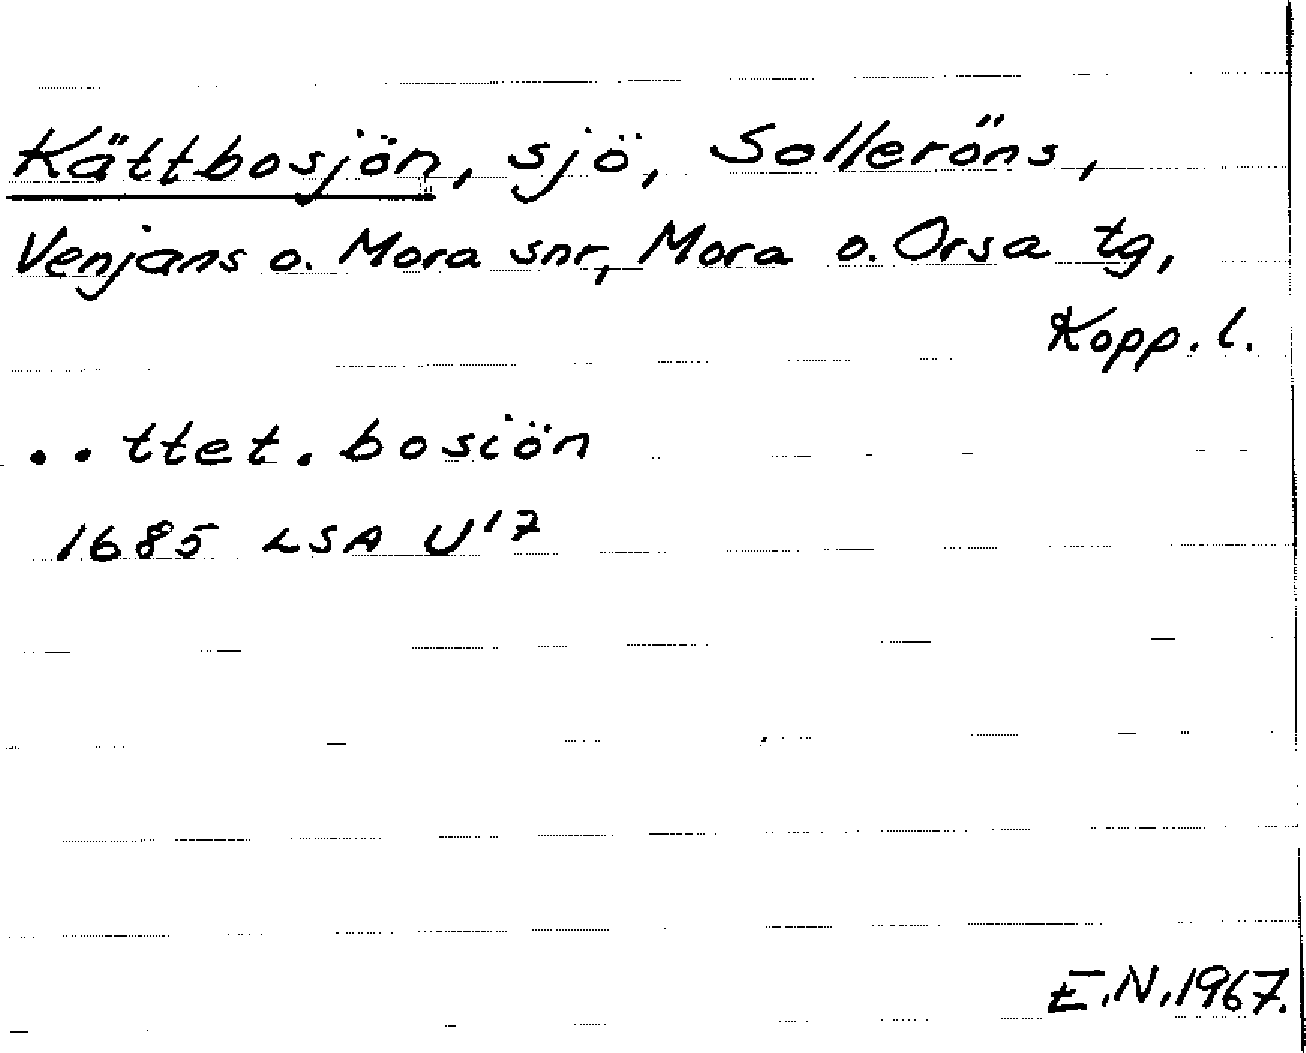 Kättbosjön, sjö, Solleröns,
Venjans o. Mora snr, Mora o. Orsa tg,
Kopp. l.
.. ttet. bosiön
1685 LSA U'7
E.N.1967.